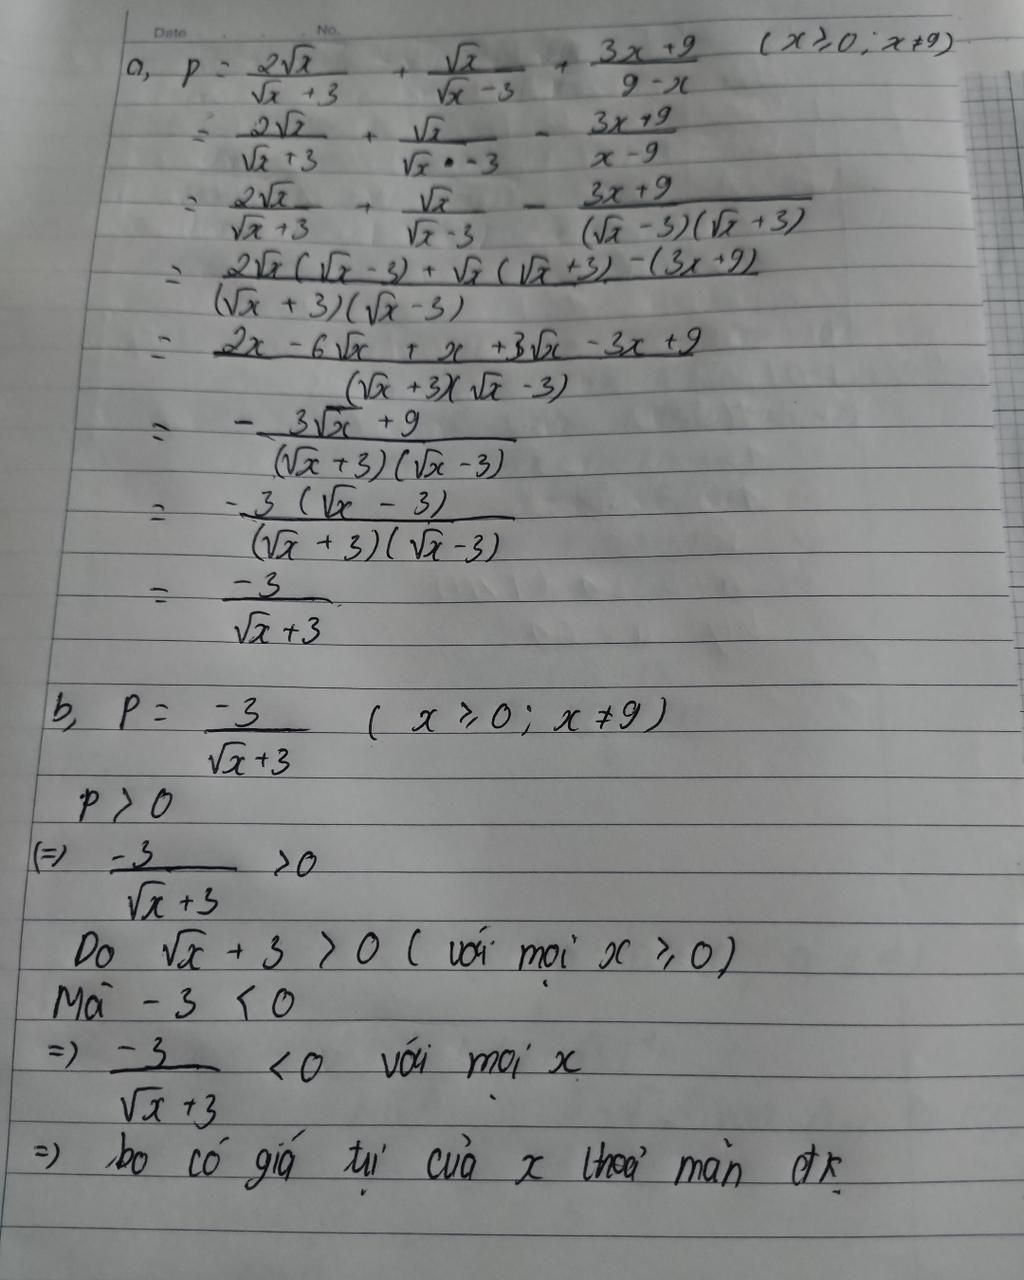 Date No.
a, P = 2√x / (√x + 3) + √x / (√x - 3) + (3x + 9) / (9 - x) (x ≥ 0 ; x ≠ 9)
= 2√x / (√x + 3) + √x / (√x - 3) - (3x + 9) / (x - 9)
= 2√x / (√x + 3) + √x / (√x - 3) - (3x + 9) / ((√x - 3)(√x + 3))
= (2√x (√x - 3) + √x (√x + 3) - (3x + 9)) / ((√x + 3)(√x - 3))
= (2x - 6√x + x + 3√x - 3x + 9) / ((√x + 3)(√x - 3))
= (- 3√x + 9) / ((√x + 3)(√x - 3))
= (-3 (√x - 3)) / ((√x + 3)(√x - 3))
= -3 / (√x + 3)
b, P = -3 / (√x + 3) ( x ≥ 0 ; x ≠ 9 )
P > 0
(=) -3 / (√x + 3) > 0
Do √x + 3 > 0 ( với mọi x ≥ 0 )
Mà - 3 < 0
=) -3 / (√x + 3) < 0 với mọi x
=) ko có giá trị của x thoả mãn đk